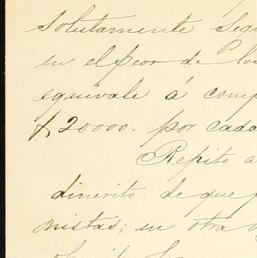 solutamente segu
en el peor de los
equivale á comp
$20000. por cada
Repito a
dinerito de que p
nistas; en otra